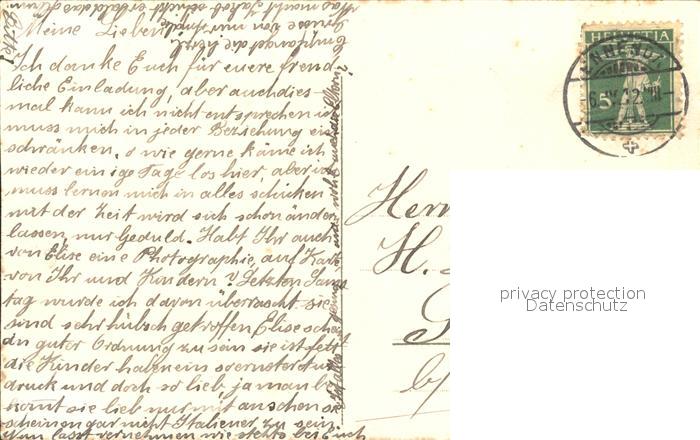 Meine Lieben!
Ich danke Euch für euere freund-
liche Einladung, aber auch dies-
mal kann ich nicht entsprechen ich
muss mich in jeder Beziehung ein-
schränken, o wie gerne käme ich
wieder einige Tage los hier, aber ich
muss lernen mich in alles schicken
mit der Zeit wird sich schon ändern
lassen, nur Geduld. Habt Ihr auch
von Elise eine Photographie, auf Karte
von Ihr und Kindern? Letzten Sams-
tag wurde ich davon überrascht, sie
sind sehr hübsch getroffen, Elise scheint
in guter Ordnung zu sein sie ist fett
die Kinder haben ein so ernster Aus-
druck und doch so lieb, ja man be-
komt sie lieb nur mit anschen sie
scheinen gar nicht Italiener, zu sein
Nun lasst vernehmen wie stehts bei Euch
HELVETIA
5
Herrn
H.
privacy protection
Datenschutz